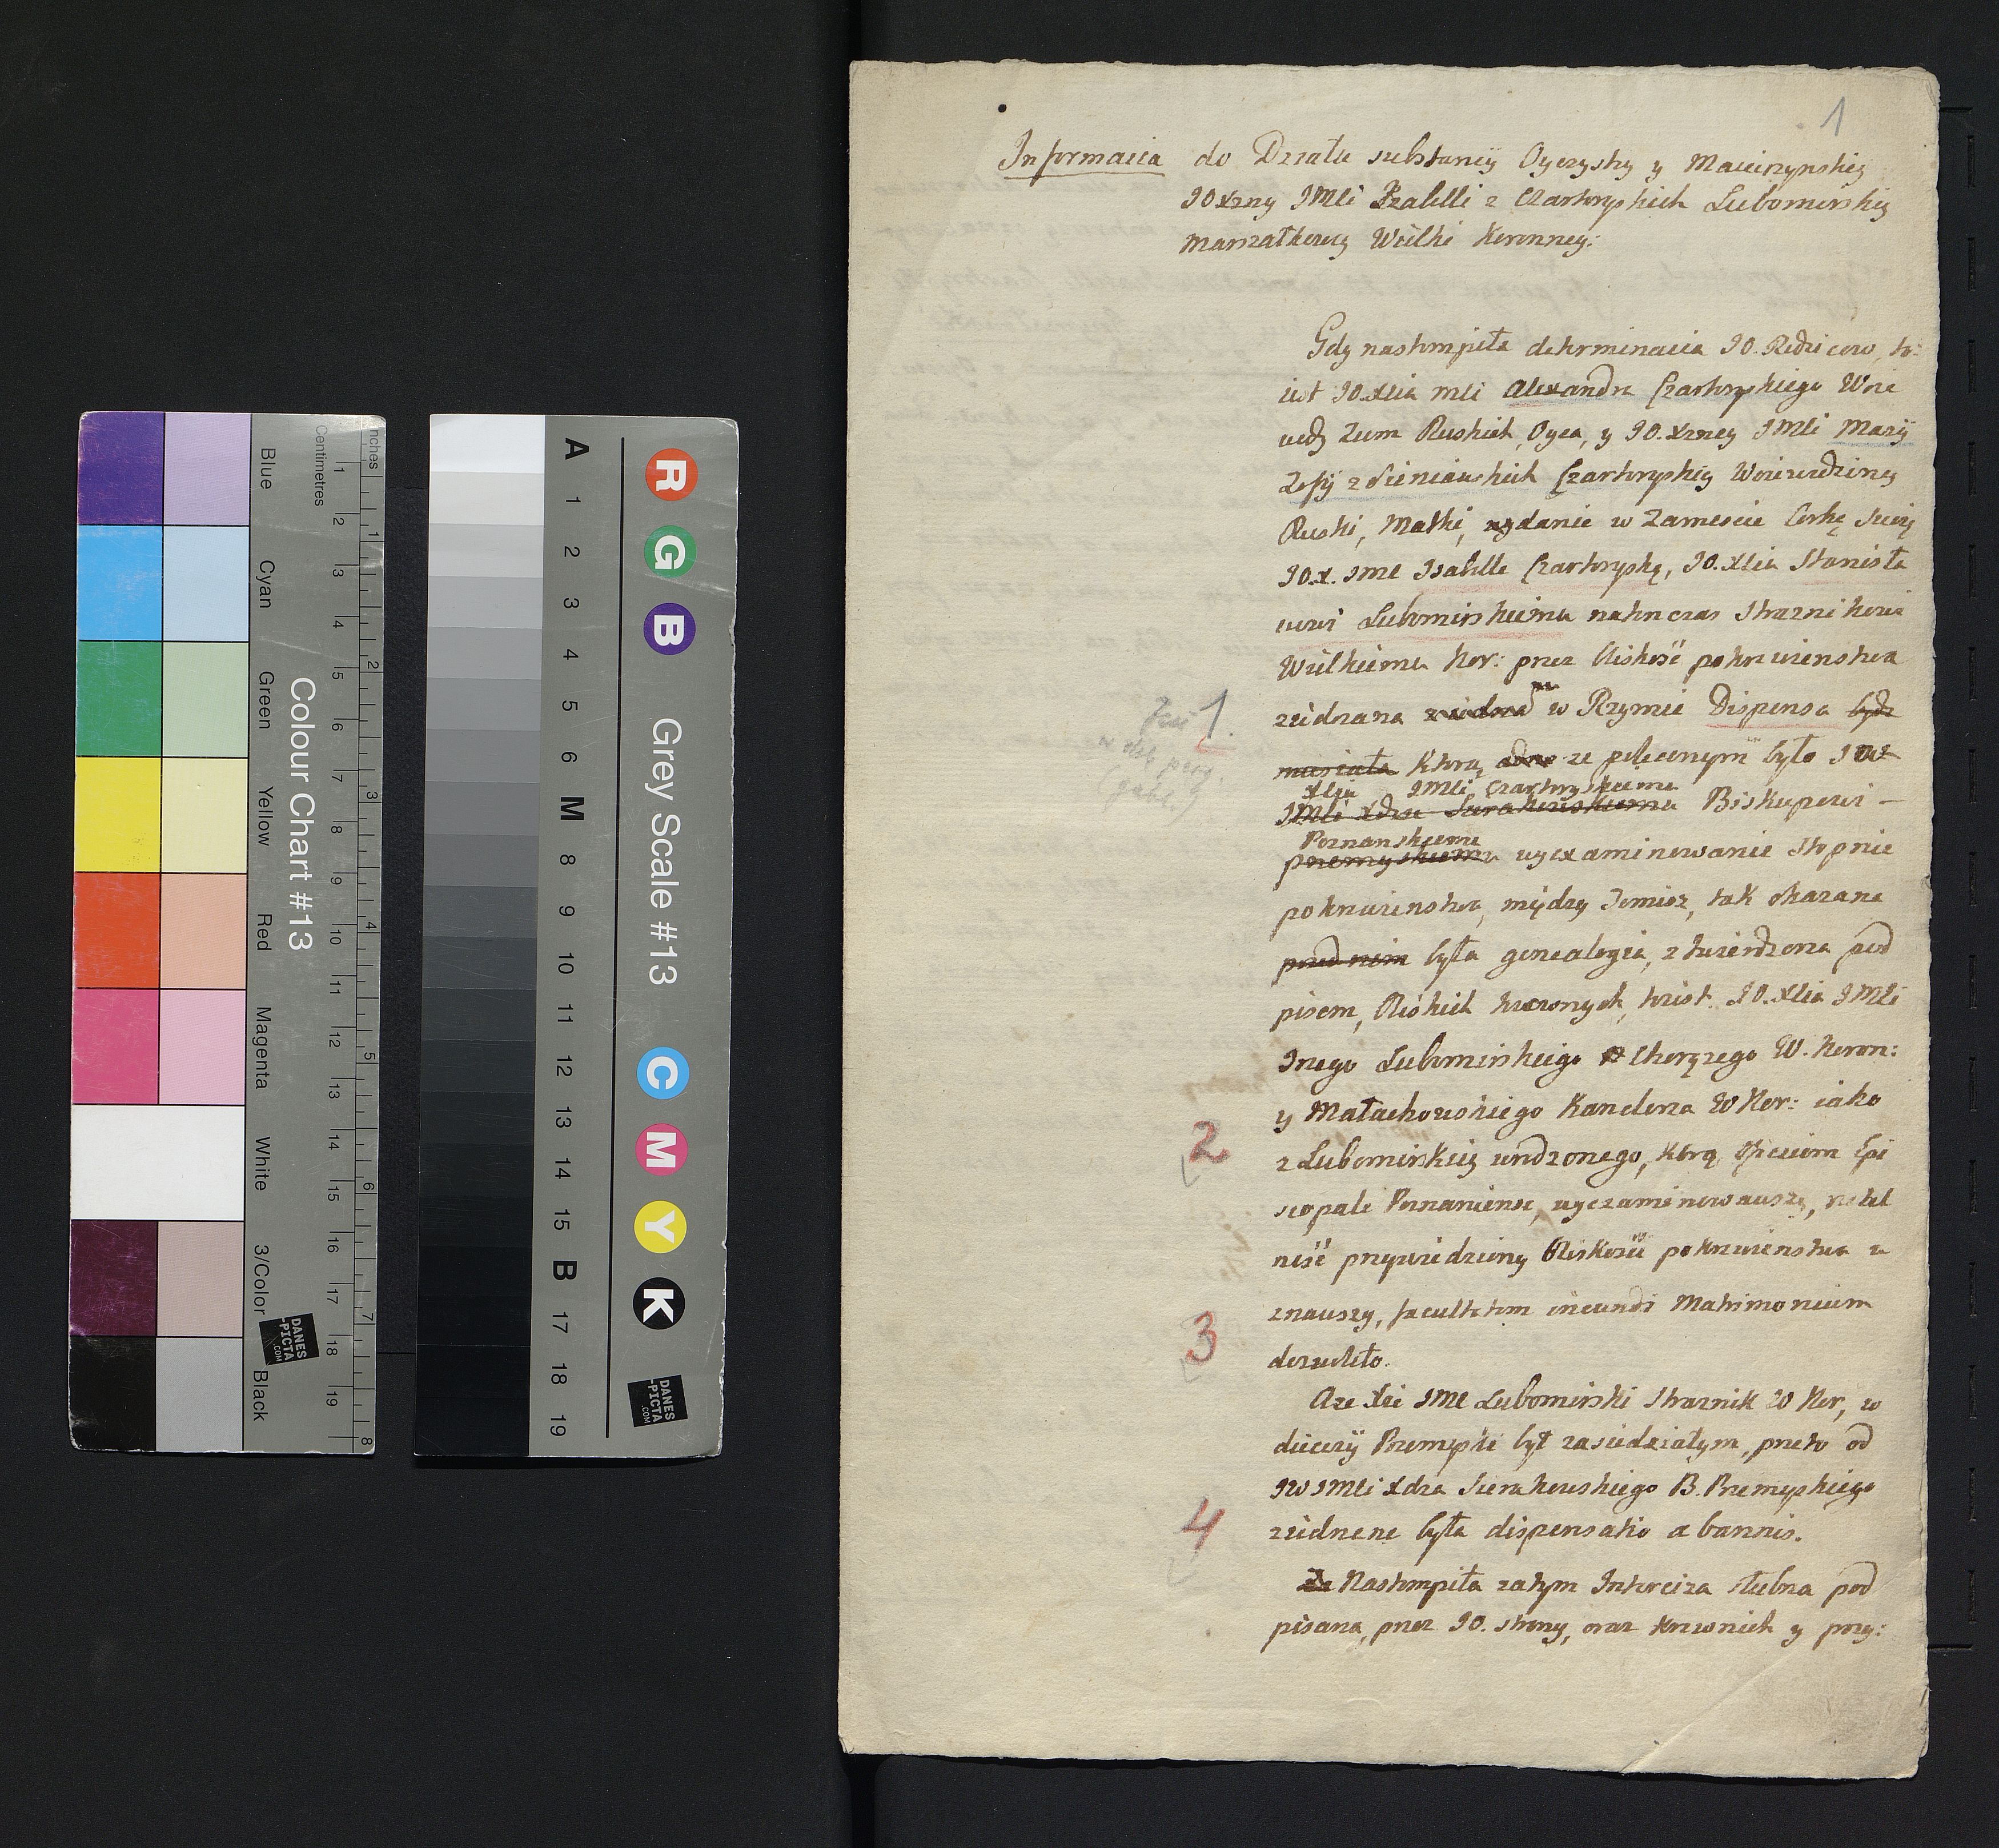 Inches
Centimetres
1 2 3 4 5 6 7 8 9 10 11 12 13 14 15 16 17 18 19
1 2 3 4 5 6 7 8
Blue
Cyan
Green
Yellow
Red
Magenta
White
3/Color
Black
Colour Chart #13
DANES
-PICTA
.COM
A 1 2 3 4 5 6 M 8 9 10 11 12 13 14 15 B 17 18 19
R G B
Grey Scale #13
C M Y K
DANES
-PICTA
.COM
1
Informacia do Działu substancij Oyczysty y Macierzynskiey
JOxzny JMCi Izabelli z Czartoryskich Lubomirskiey
marszałkowey Wielki Koronney:
Gdy nastompiła determinacia JO. Rodzicow, to:
iest JO.Xcia mci Alexandra Czartoryskiego Woie
wody Ziem Ruskich, Oyca, y JO.Xzney JMCi Maryi
Zofij z Sieniawskich Czartoryskiey Woiewodziney
Ruski, Matki, wydanie w Zamescie Corkę Swoię
JO.X. JMC Isabelle Czartoryskę, JO.Xcia Stanisła
wowi Lubomirskiemu natenczas Straznikowi
Wielkiemu Kor: przez bliskość pokrewienstwa
1.
zeidnana w Rzymie Dispensa bydz
musiała Ktorą ze poleconym było JW
Xcia JMCi Czartoryskiemu
JMCi Xdzu Sierakowskiemu Biskupowi –
Poznanskiemu
przemyskiemu wyexaminowanie Stopnie
pokrewienstwa, między Jemisz, tak okazana
przed nim była genealogia, ztwierdzona pod
pisem, bliskich krewnych, toiest. JO.Xcia JMCi
Jnego Lubomirskiego Chorązego W. Koron:
y Małachowskiego Kanclerza W Kor: iako
2
z Lubomirskiey urodzonego, Ktorą Officium Epi
scopale Posnaniense, wyexaminowawszy, rzetel
ność przywiedziony bliskości pokrewienstwa u
3
znawszy, facultatem ineundi Matrimonium
dozwoliło.
Aze Xże JMC Lubomirski Straznik W Kor, w
diecezij Przemyski był zasiedziałym, przeto od
JW JMCi Xdza Sierakowskiego B. Przemyskiego
4
zeidnene była dispensatio a bannis.
Nastompiła zatym Intercyza slubna pod
pisana, przez JO. strony, oraz Krewnich y przy: